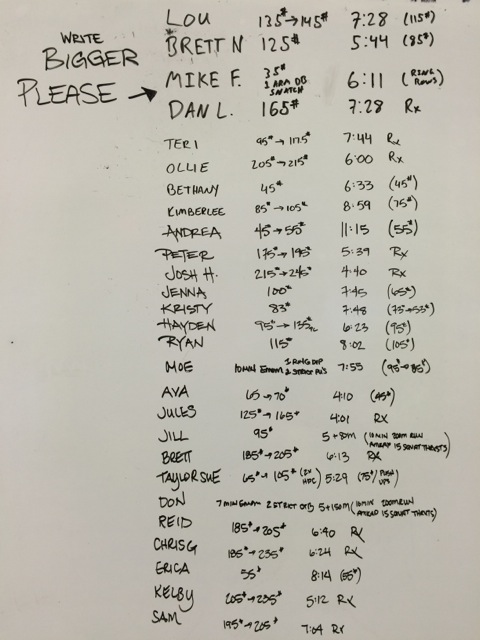 WRITE
BIGGER
PLEASE →
LOU 135# → 145# 7:28 (115#)
BRETT N 125# 5:44 (85#)
MIKE F. 35# 1 ARM DB SNATCH 6:11 (RING ROWS)
DAN L. 165# 7:28 Rx
TERI 95# → 117.5# 7:44 Rx
OLLIE 205# → 215# 6:00 Rx
BETHANY 45# 6:33 (45#)
KIMBERLEE 85# → 105# 8:59 (75#)
ANDREA 45# → 55# 11:15 (55#)
PETER 175# → 195# 5:39 Rx
JOSH H. 215# → 245# 4:40 Rx
JENNA 100# 7:45 (65#)
KRISTY 83# 7:48 (75→55#)
HAYDEN 95# → 135# 6:23 (95#)
RYAN 115# 8:02 (105#)
MOE 10 MIN EMOM 1 RING DIP 2 STRICT 7:55 (95# → 85#)
AVA 65 → 70# 4:10 (45#)
JULES 125# → 165# 4:01 RX
JILL 95# 5 + 80m (10 MIN 200M RUN AMRAP 15 SQUAT THRUSTS)
BRETT 185# → 205# 6:13 RX
TAYLOR SUE 65# → 105# (2x HPC) 5:29 (75#/PUSH UPS)
DON 7 MIN EMOM 2 STRICT 5+150M (10 MIN 200M RUN AMRAP 15 SQUAT THRUSTS)
REID 185# → 205# 6:40 RX
CHRIS G 185# → 235# 6:24 RX
ERICA 55# 8:14 (55#)
KELBY 205# → 235# 5:12 RX
SAM 195# → 205# 7:04 RX